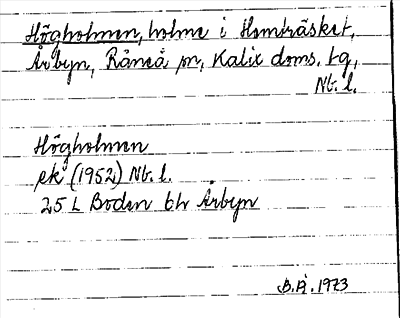 Högholmen, holme i Hemträsket,
Årbyn, Råneå sn, Kalix doms. tg,
Nb. l.
Högholmen
ek (1952) Nb. l.
25 L Boden bl Årbyn
B.Å. 1973